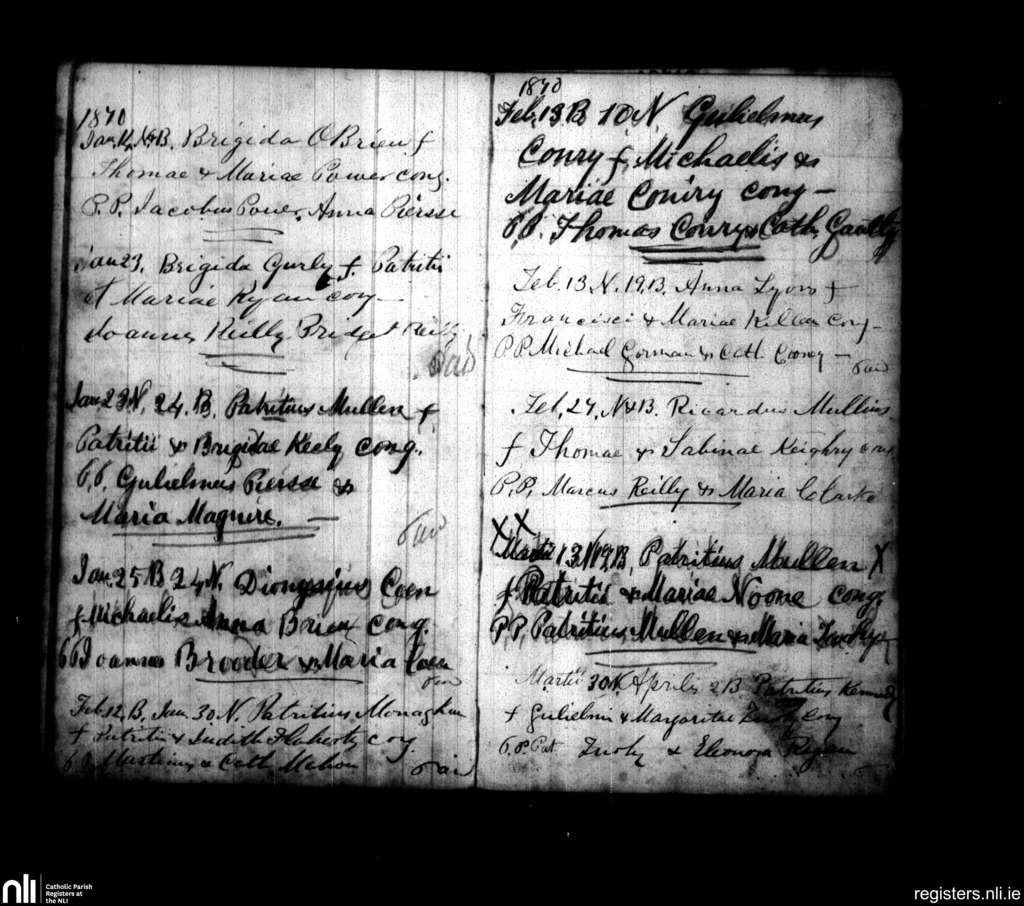 1870
Jan. 14, N&B. Brigida O'Brien f
Thomae & Mariae Power cong.
P.P. Jacobus Power, Anna Piersse
Jan 23, Brigida Gurly f. Patritii
et Mariae Ryan cong
Joannes Reilly, Bridget Reilly
Paid
Jan 23 N, 24, B, Patritius Mullen f
Patritii & Brigidae Keely cong.
P.P. Gulielmus Piersse &
Maria Maguire.
Paid
Jan. 25 B 24 N. Dionysius Coen
f Michaelis Anna Brien cong.
PP Joannes Brooder & Maria Coen
Paid
Feb. 12, B, Jan. 30 N. Patritius Monaghan
f Patritii & Judith Flaherty cong.
P.P. Martinus & Cath Mahon
Paid
1870
Feb, 13 B 10 N. Gulielmus
Conry f, Michaelis &
Mariae Conry cong –
P.P. Thomas Conry & Cath,
Feb. 13 N. 19, B. Anna Lyons f
Francisci & Mariae Killan cong –
P.P. Michael Gorman & Cath Cooney –
Paid
Feb, 27, N&B. Ricardus Mullins
f Thomae & Sabinae Keighry cong
P.P, Marcus Reilly & Maria Clarke
XX
Martii 13 N 19, B, Patritius Mullen X
f Patritii & Mariae Noone cong.
P.P, Patritius Mullen & Maria
Martii 30 N Aprilis 2 B Patritius Kennedy
f Gulielmi & Margaritae cong
P.P. Pat & Eleonora Ryan
nli
Catholic Parish
Registers at
the NLI
registers.nli.ie